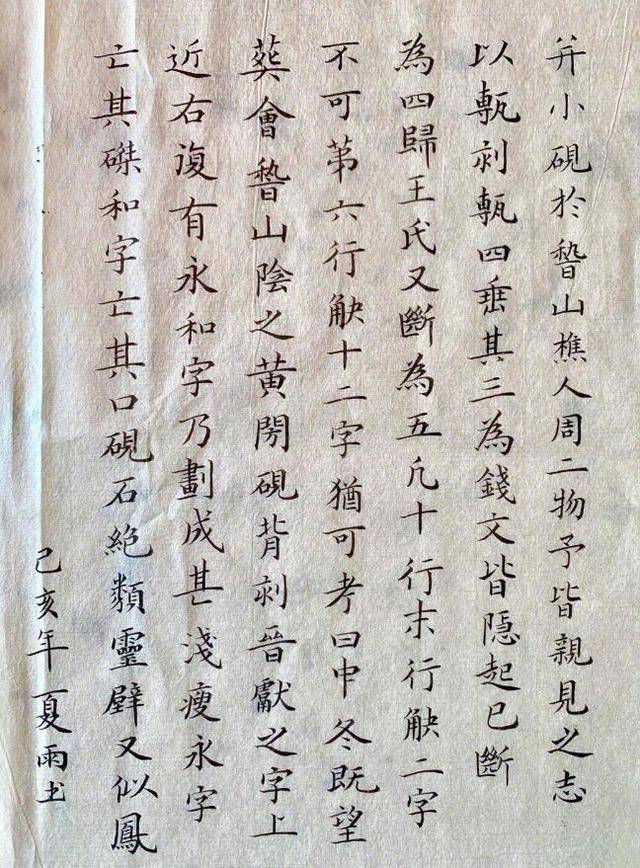 并小硯於稽山樵人周二物予皆親見之志
以甎剥甎四垂其三為錢文皆隠起已斷
為四歸王氏又斷為五凡十行末行觖二字
不可苐六行觖十二字猶可考曰中冬既望
葬會稽山陰之黄閍硯背剥晉獻之字上
近右復有永和字乃劃成甚淺瘦永字
亡其磔和字亡其口硯石絶類靈壁又似鳳
己亥年夏雨书